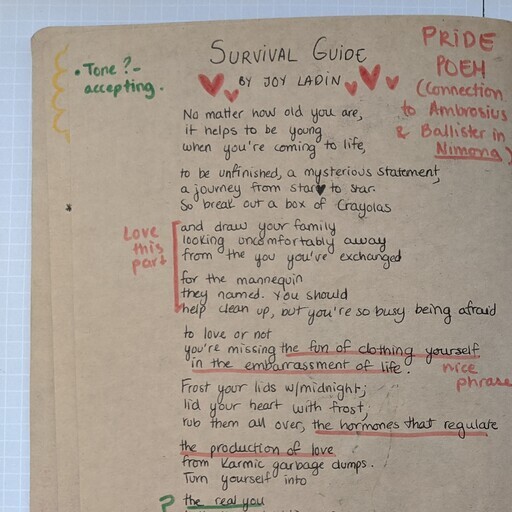 SURVIVAL GUIDE
BY JOY LADIN
• Tone?-
accepting.
PRIDE
POEM
(Connection
to Ambrosius
& Ballister in
Nimona)
No matter how old you are,
it helps to be young
when you're coming to life,
to be unfinished, a mysterious statement,
a journey from star to star.
So break out a box of Crayolas
and draw your family
looking uncomfortably away
from the you you've exchanged
for the mannequin
they named. You should
help clean up, but you're so busy being afraid
Love
this
part
to love or not
you're missing the fun of clothing yourself
in the embarrassment of life.
nice
phrase
Frost your lids w/midnight;
lid your heart with frost;
rub them all over, the hormones that regulate
the production of love
from karmic garbage dumps.
Turn yourself into
? the real you